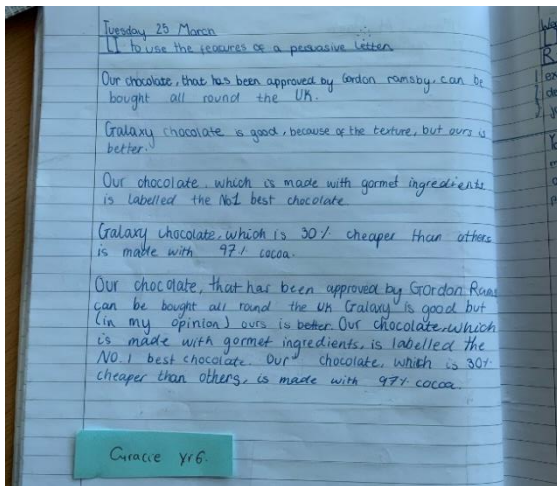 Tuesday 25 March
LI to use the features of a persuasive letter
Our chocolate, that has been approved by Gordon ramsby, can be
bought all round the UK.
Galaxy chocolate is good, because of the texture, but ours is
better.
Our chocolate, which is made with gormet ingredients
is labelled the No1 best chocolate
Galaxy chocolate, which is 30% cheaper than others
is made with 97% cocoa.
Our chocolate, that has been approved by Gordon Rams
can be bought all round the UK Galaxy is good but
(in my opinion) ours is better. Our chocolate, which
is made with gormet ingredients, is labelled the
NO.1 best chocolate. Our chocolate, which is 30%
cheaper than others, is made with 97% cocoa.
Gracie yr6.